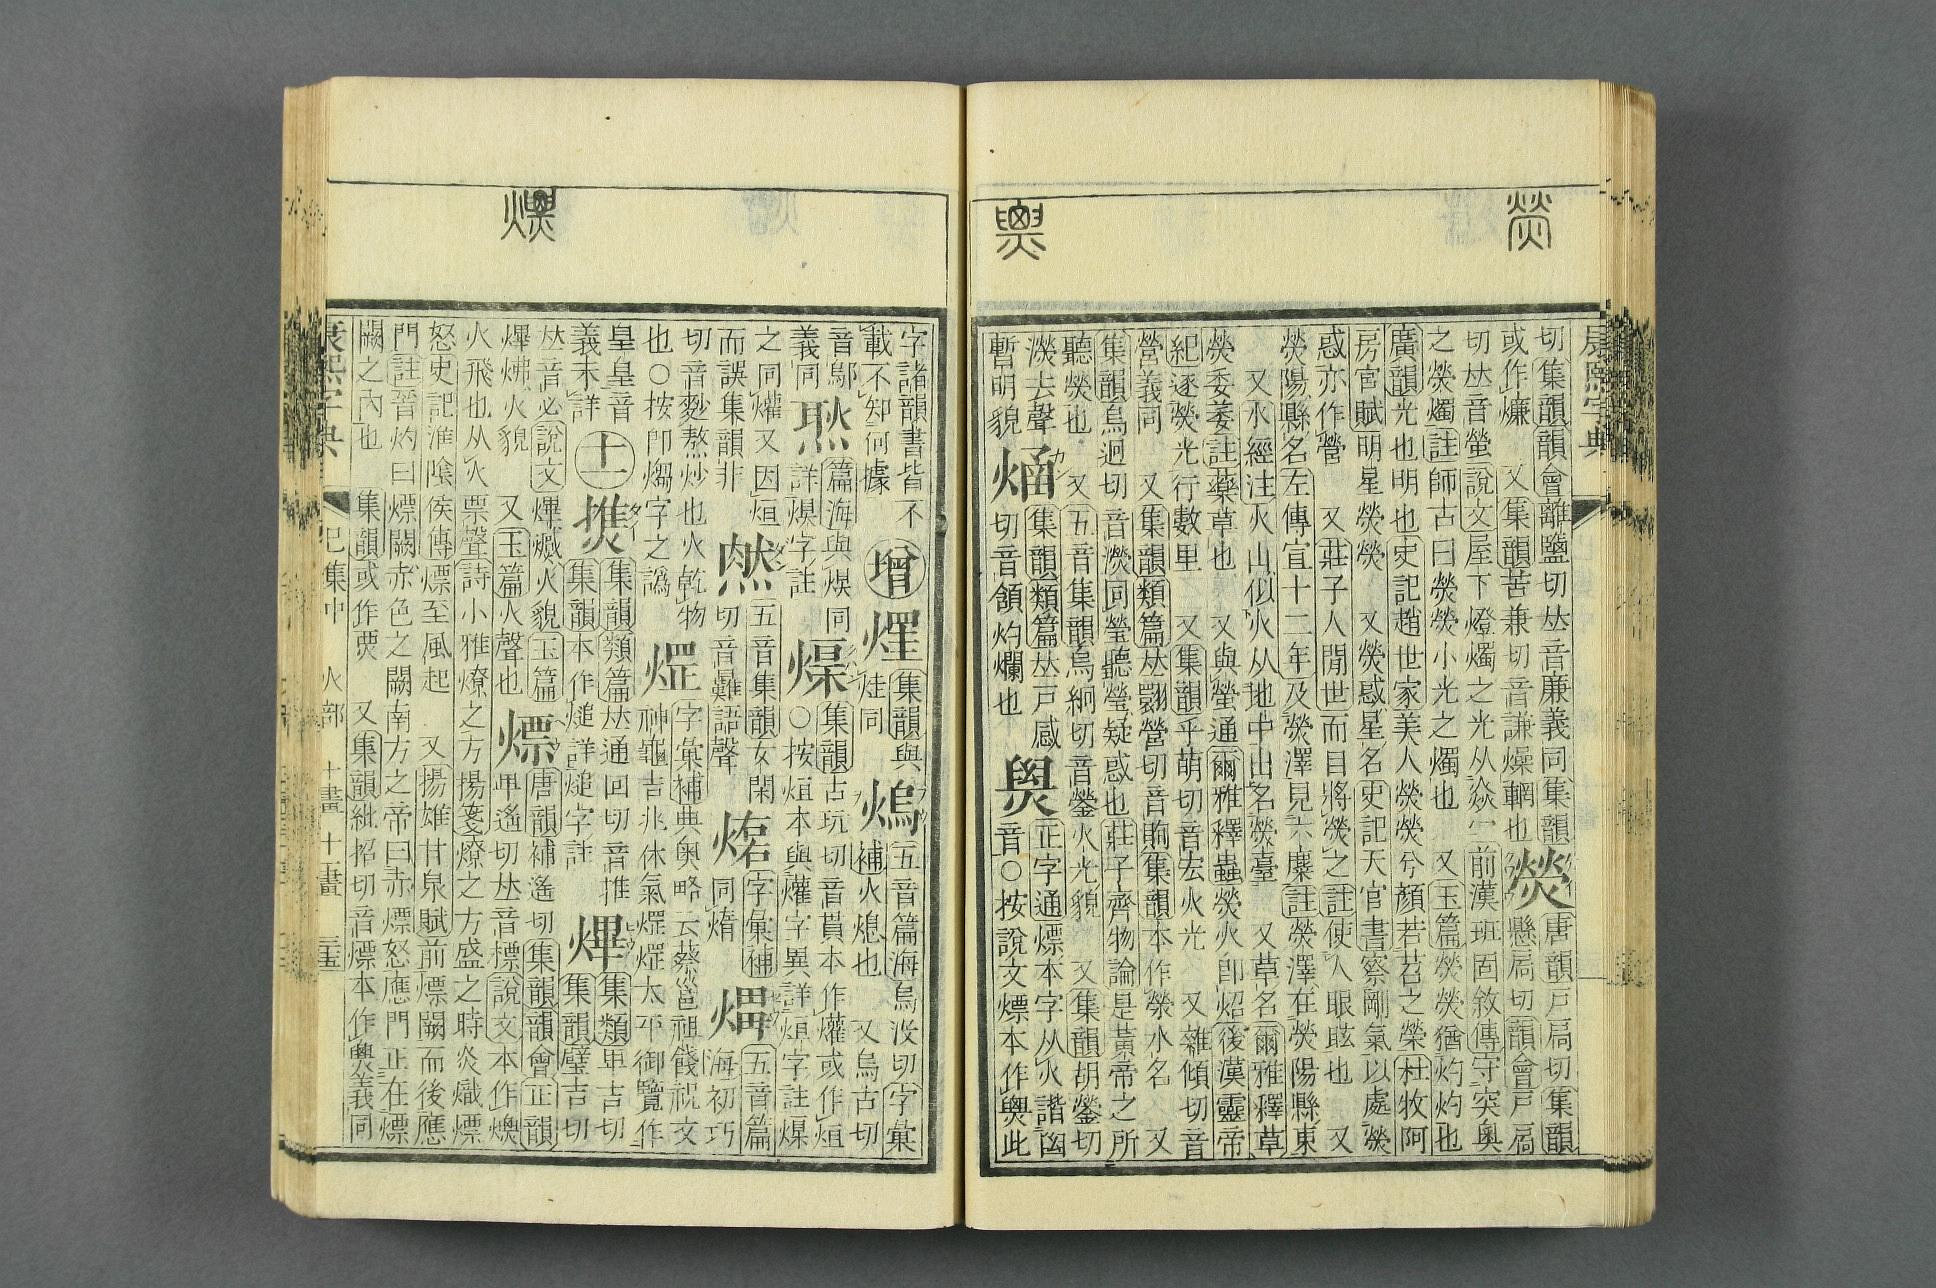 熒
㷠
康熙字典
切集韻韻會離鹽切𠀤音廉義同集韻熒唐韻戸扃切集韻
或作燫 又集韻苦兼切音謙燥輞也 懸扃切韻會戸扃
切𠀤音螢說文屋下燈燭之光从焱冖前漢班固敘傳守突奧
之熒燭註師古曰熒熒小光之燭也 又玉篇熒熒猶灼灼也
廣韻光也明也史記趙世家美人熒熒兮顏若苕之榮杜牧阿
房宮賦明星熒熒 又熒惑星名史記天官書察剛氣以處熒
惑亦作營 又莊子人閒世而目將熒之註使人眼眩也 又
熒陽縣名左傳宣十二年及熒澤見六麋註熒澤在熒陽縣東
又水經注火山似火从地中出名熒臺 又草名爾雅釋草
熒委萎註藥草也 又與螢通爾雅釋蟲熒火卽炤後漢靈帝
紀逐熒光行數里 又集韻乎萌切音去火光 又維傾切音
營義同 又集韻類篇𠀤翾營切音眴集韻本作滎水名 又
集韻烏迥切音濙同瑩聽瑩疑惑也莊子齊物論是黃帝之所
聽熒也 又五音集韻烏絅切音鎣火光貌 又集韻胡鎣切
濙去聲 集韻類篇𠀤戸感 正字通熛本字从火䚻囟
暫明貌 切音頷灼爛也 㷠 音○按說文熛本作㷠此
熛
字諸韻書皆不 增 煋 集韻與 五音篇海烏沒切字彙
載不知何據 烓同 熓 補火熄也 又烏古切
音鄔 篇海與煤同 集韻古玩切音貫本作爟或作烜
義同 詳煤字註 ○按烜本與爟字異詳烜字註煤
之同爟又因烜 五音集韻女閑 字彙補 五音篇
而誤集韻非 切音難語聲 同㷪 海初巧
切音麨熬炒也火乾物 字彙補典奧略云蔡邕祖餞祝文
也○按卽煼字之譌 神龜吉兆休氣煋煋太平御覽作
皇皇音 集韻類篇𠀤通回切音推 集類畢吉切
義未詳 十一 集韻本作煺詳煺字註 熚 集韻璧吉切
𠀤音必說文熚㷸火貌玉篇 唐韻補遙切集韻韻會正韻
熚㶿火貌 又玉篇火聲也 熛 甲遙切𠀤音標說文本作㷠
火飛也从火票聲詩小雅燎之方揚箋燎之方盛之時炎熾熛
怒史記淮陰侯傳熛至風起 又揚雄甘泉賦前熛闕而後應
門註晉灼曰熛闕赤色之闕南方之帝曰赤熛怒應門正在熛
闕之內也 集韻或作票 又集韻紕招切音漂本作㷠義同
康熙字典 巳集中 火部 十畫 十一畫